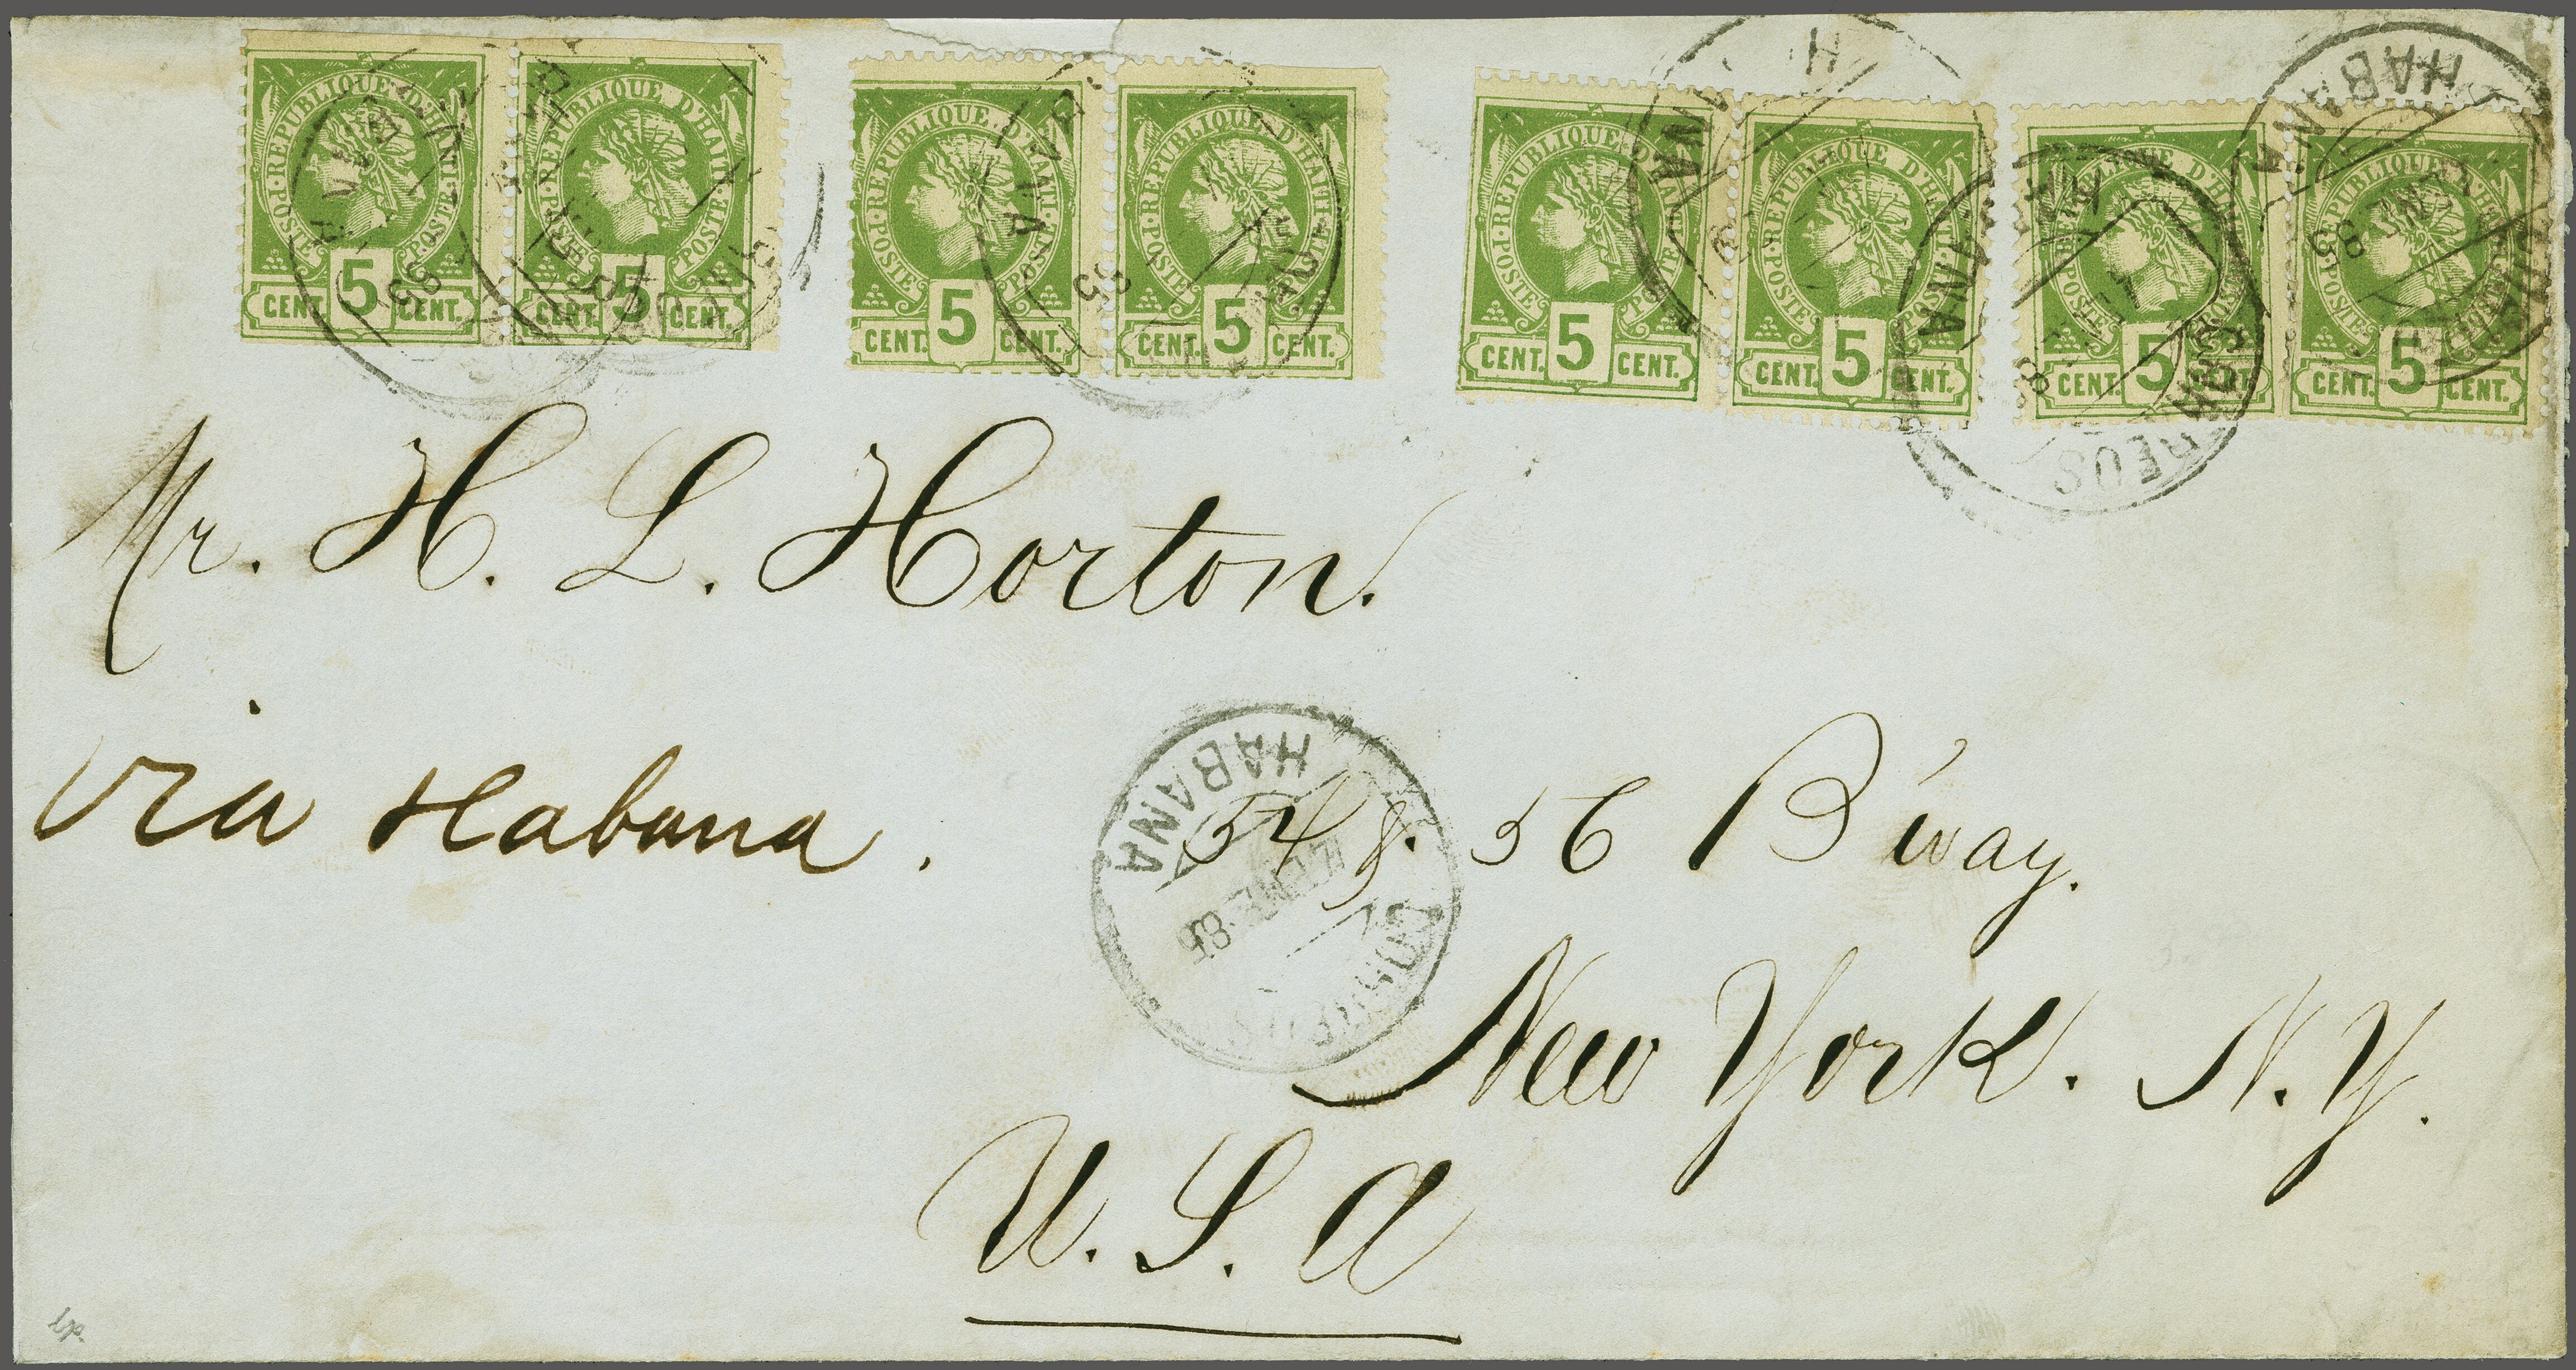 REPUBLIQUE D'HAITI POSTE POSTE 5 CENT. CENT.
REPUBLIQUE D'HAITI POSTE POSTE 5 CENT. CENT.
REPUBLIQUE D'HAITI POSTE POSTE 5 CENT. CENT.
REPUBLIQUE D'HAITI POSTE POSTE 5 CENT. CENT.
REPUBLIQUE D'HAITI POSTE POSTE 5 CENT. CENT.
REPUBLIQUE D'HAITI POSTE POSTE 5 CENT. CENT.
REPUBLIQUE D'HAITI POSTE POSTE 5 CENT. CENT.
REPUBLIQUE D'HAITI POSTE POSTE 5 CENT. CENT.
HABANA
Mr. H. L. Horton.
via Habana.
54 & 56 B'way.
HABANA
85
CORREOS
New York. N.Y.
U.S.A